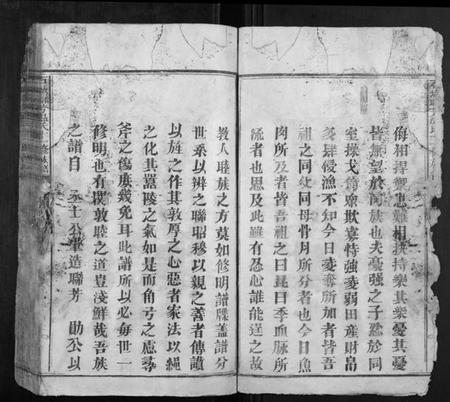 侮相捍禦患難相扶持樂其樂憂其憂
皆無望於同族也夫豪強之子鬩於同
室操戈脅眾欺寡恃強凌弱田產財帛
多肆侵漁不知今日凌奪所加者皆吾
祖之同父同母骨月所分者也今日魚
肉所及者皆吾祖之曰昆曰季血脉所
流者也思及此雖有忍心誰能逞之故
教人睦族之方莫如修明譜牒蓋譜分
世系以辨之聯昭穆以親之善者傳讚
以旌之作其敦厚之心惡者家法以繩
之化其囂陵之氣如是而角弓之慝尋
斧之傷庶幾免耳此譜所以必每世一
修明也有樸敦睦之道豈淺鮮哉吾族
之譜自 公肇造聯芳 勛公以